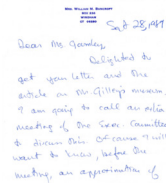 MRS. WILLIAM H. BANCROFT
BOX
WINDHAM
CT 06280
Sept 28, 1987
Dear Mr. Gandey,
Delighted to
get your letter and the
article on Mr. Gilley's museum.
I am going to call an
meeting of the Exec Committee
to discuss this. Of course I will
want to know, before the
meeting, an approximation of